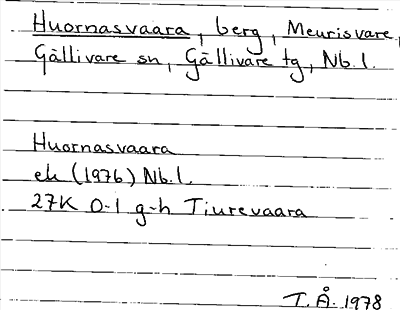 Huornasvaara, berg, Meurisvare,
Gällivare sn, Gällivare tg, Nb.l.
Huornasvaara
ek (1976) Nb.l.
27K 0-1 g-h Tiurevaara
T.Å. 1978